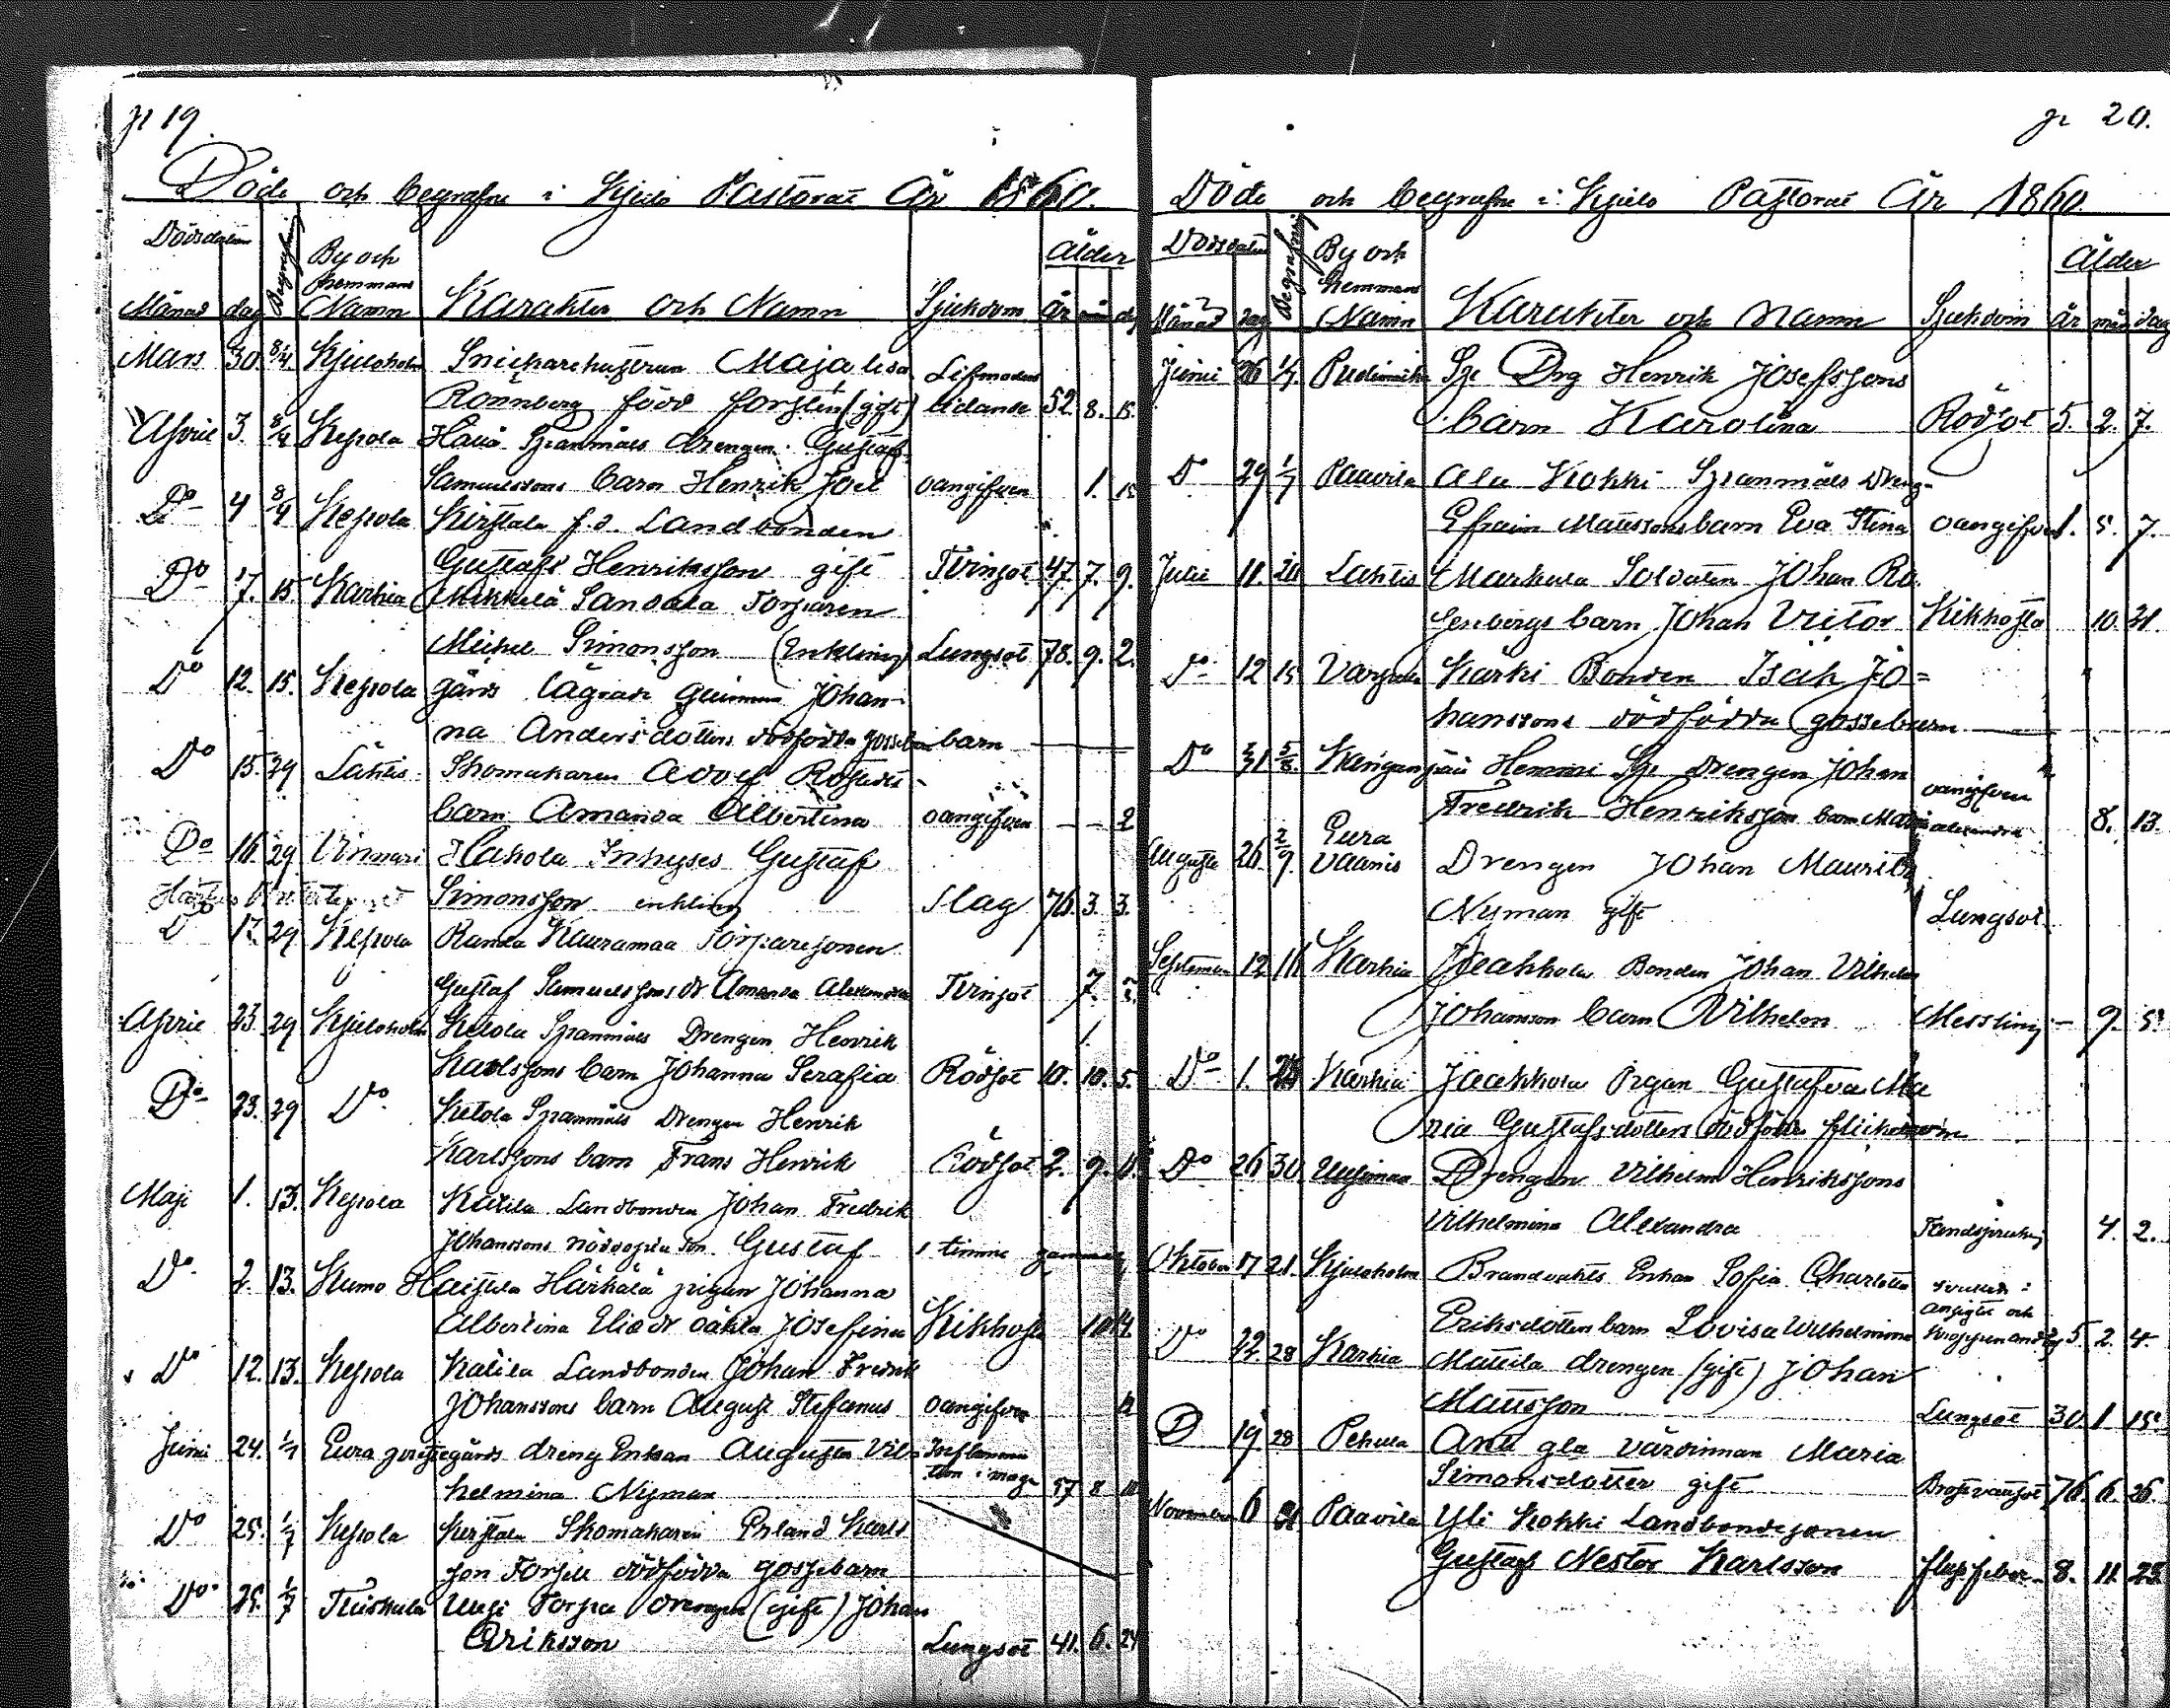 p 19.
Döde och begrafne i Kjulo Pastorat År 1860.
Dödsdatum Begrafning By och hemmans Namn Karakter och Namn Sjukdom Ålder
Månad dag år må dg
Mars 30. 8/4. Kjuloholm Snickarehustrun Maja Lisa Lifmoders
Rönnberg född Forstén (gift) lidande 52 8. 15.
April 3. 8/4 Kepola Hauä Spanmåls drengen Gustaf
Samuelssons barn Henrik Joel oangifven 1. 15
Do 4 8/4 Kepola Kirstala f.d. Landbonden
Gustaf Henriksson gift Tvinsot 47. 7. 9.
Do 7. 15. Karhia Mikkelä Sandala Torparen
Michel Simonsson (Enkling) Lungsot 78. 9. 2.
Do 12. 15. Kepola gårds lägrade qvinnan Johan-
na Andersdotters dödfödda gossebarn
Do 15. 29 Lähtis Skomakaren Adolf
barn Amanda Albertina oangifven - - 2
Do 16. 29 Vinnari Hakola Inhyses Gustaf
Simonsson enkling Slag 76. 3. 3.
Do 17. 29 Kepola Randa Kauramaa Torparesonen
Gustaf Samuelssons dr Amanda Alexandra Tvinsot 7.
April 23. 29 Kjuloholm Ketola Spanmåls Drengen Henrik
Karlssons barn Johanna Serafia Rödsot 10. 10. 5.
Do 23. 29 Do Ketola Spanmåls Drengen Henrik
Karlssons barn Frans Henrik Rödsot 2. 9.
Maji 1. 13. Kepola Katila Landbonden Johan Fredrik
Johanssons nöddöpta son Gustaf 1 timme gammal
Do 2. 13. Kumo Haistila Härkälä pigan Johanna
Albertina Elias dr oäkta Josefina Kikhosta 10 14.
Do 12. 13. Kepola Katila Landbonden Johan Fredrik
Johanssons barn August Stefanus oangifven 12
Juni 24. 1/7 Eura prestegårds dreng Enkan Augusta Vil- Inflamma
helmina Nyman tion i mage 57 8 10
Do 25. 1/7 Kepola Kirstala Skomakaren Erland Karls
son Forsell dödfödda gossebarn
Do 25. 1/7 Tuiskula Uusi Torpa drengen (gift) Johan
Eriksson Lungsot 41. 6. 24
p 20.
Döde och begrafne i Kjulo Pastorat År 1860.
Dödsdatum Begrafning By och hemmans Namn Karakter och Namn Sjukdom Ålder
Månad dag år mån dag
Junii 26 1/7. Sp: Drg Henrik Josefssons
barn Karolina Rödsot 5. 2. 7.
Do 29 1/7 Paavila Ala Kokki Spanmåls Dreng-
Efraim Mattssons barn Eva Stina oangifven 1. 5. 7.
Julii 11. 20 Lähtis Markula Soldaten Johan Ro
senbergs barn Johan Victor Kikhosta 10. 21.
Do 12 15 Karki Bonden Isak Jo=
hanssons dödfödda gossebarn
Do 31 5/8. Henni Sp: Drengen Johan oangifven
Fredrik Henriksson barn Maria Alexandra 8. 13.
Augusti 26 2/9. Eura Vaanis Drengen Johan Maurits
Nyman gift Lungsot
September 12 16 Karhia Jaakkola Bonden Johan Vilhelm
Johansson barn Vilhelm Messling - 9. 5.
Do 1. Karhia Jaakkola Pigan Gustafva Ma
ria Gustafsdotters dödfödda flickebarn
Do 26 30. Uusimaa Drengen Vilhelm Henrikssons
Vilhelmina Alexandra Tandsprickning 4. 2.
Oktober 17 21. Kjuloholm Brandvakts Enkan Sofia Charlotta svullnad i ansigte och
Eriksdotters barn Lovisa Wilhelmina kroppen 5. 2. 4.
Do 22. 28 Karhia Mattila drengen (gift) Johan
Mattsson Lungsot 30. 1. 15.
D 19 28 Pehula Antti gla värdinnan Maria
Simonsdotter gift Bröstvattusot 76. 6. 26.
November 6 Paavila Yli Kokki Landbondesonen
Gustaf Nestor Karlsson 8. 11. 23.